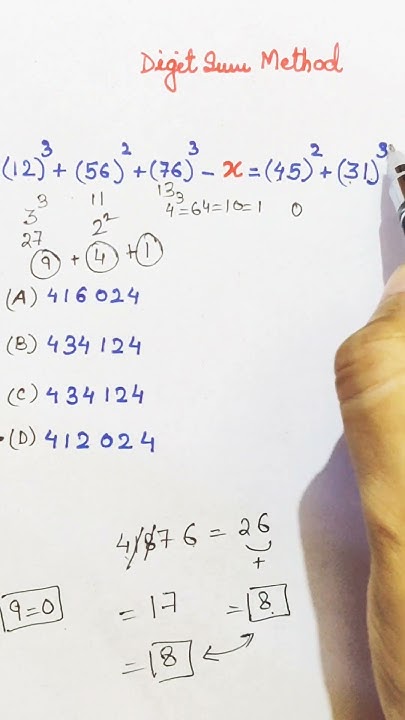 Digit Sum Method
(12)³ + (56)² + (76)³ - x = (45)² + (31)³
3³ 11 13
27 2² 4³=64=10=1 0
9 + 4 + 1
(A) 416024
(B) 434124
(C) 434124
(D) 412024
4876 = 26
+
9=0 = 17 = 8
= 8